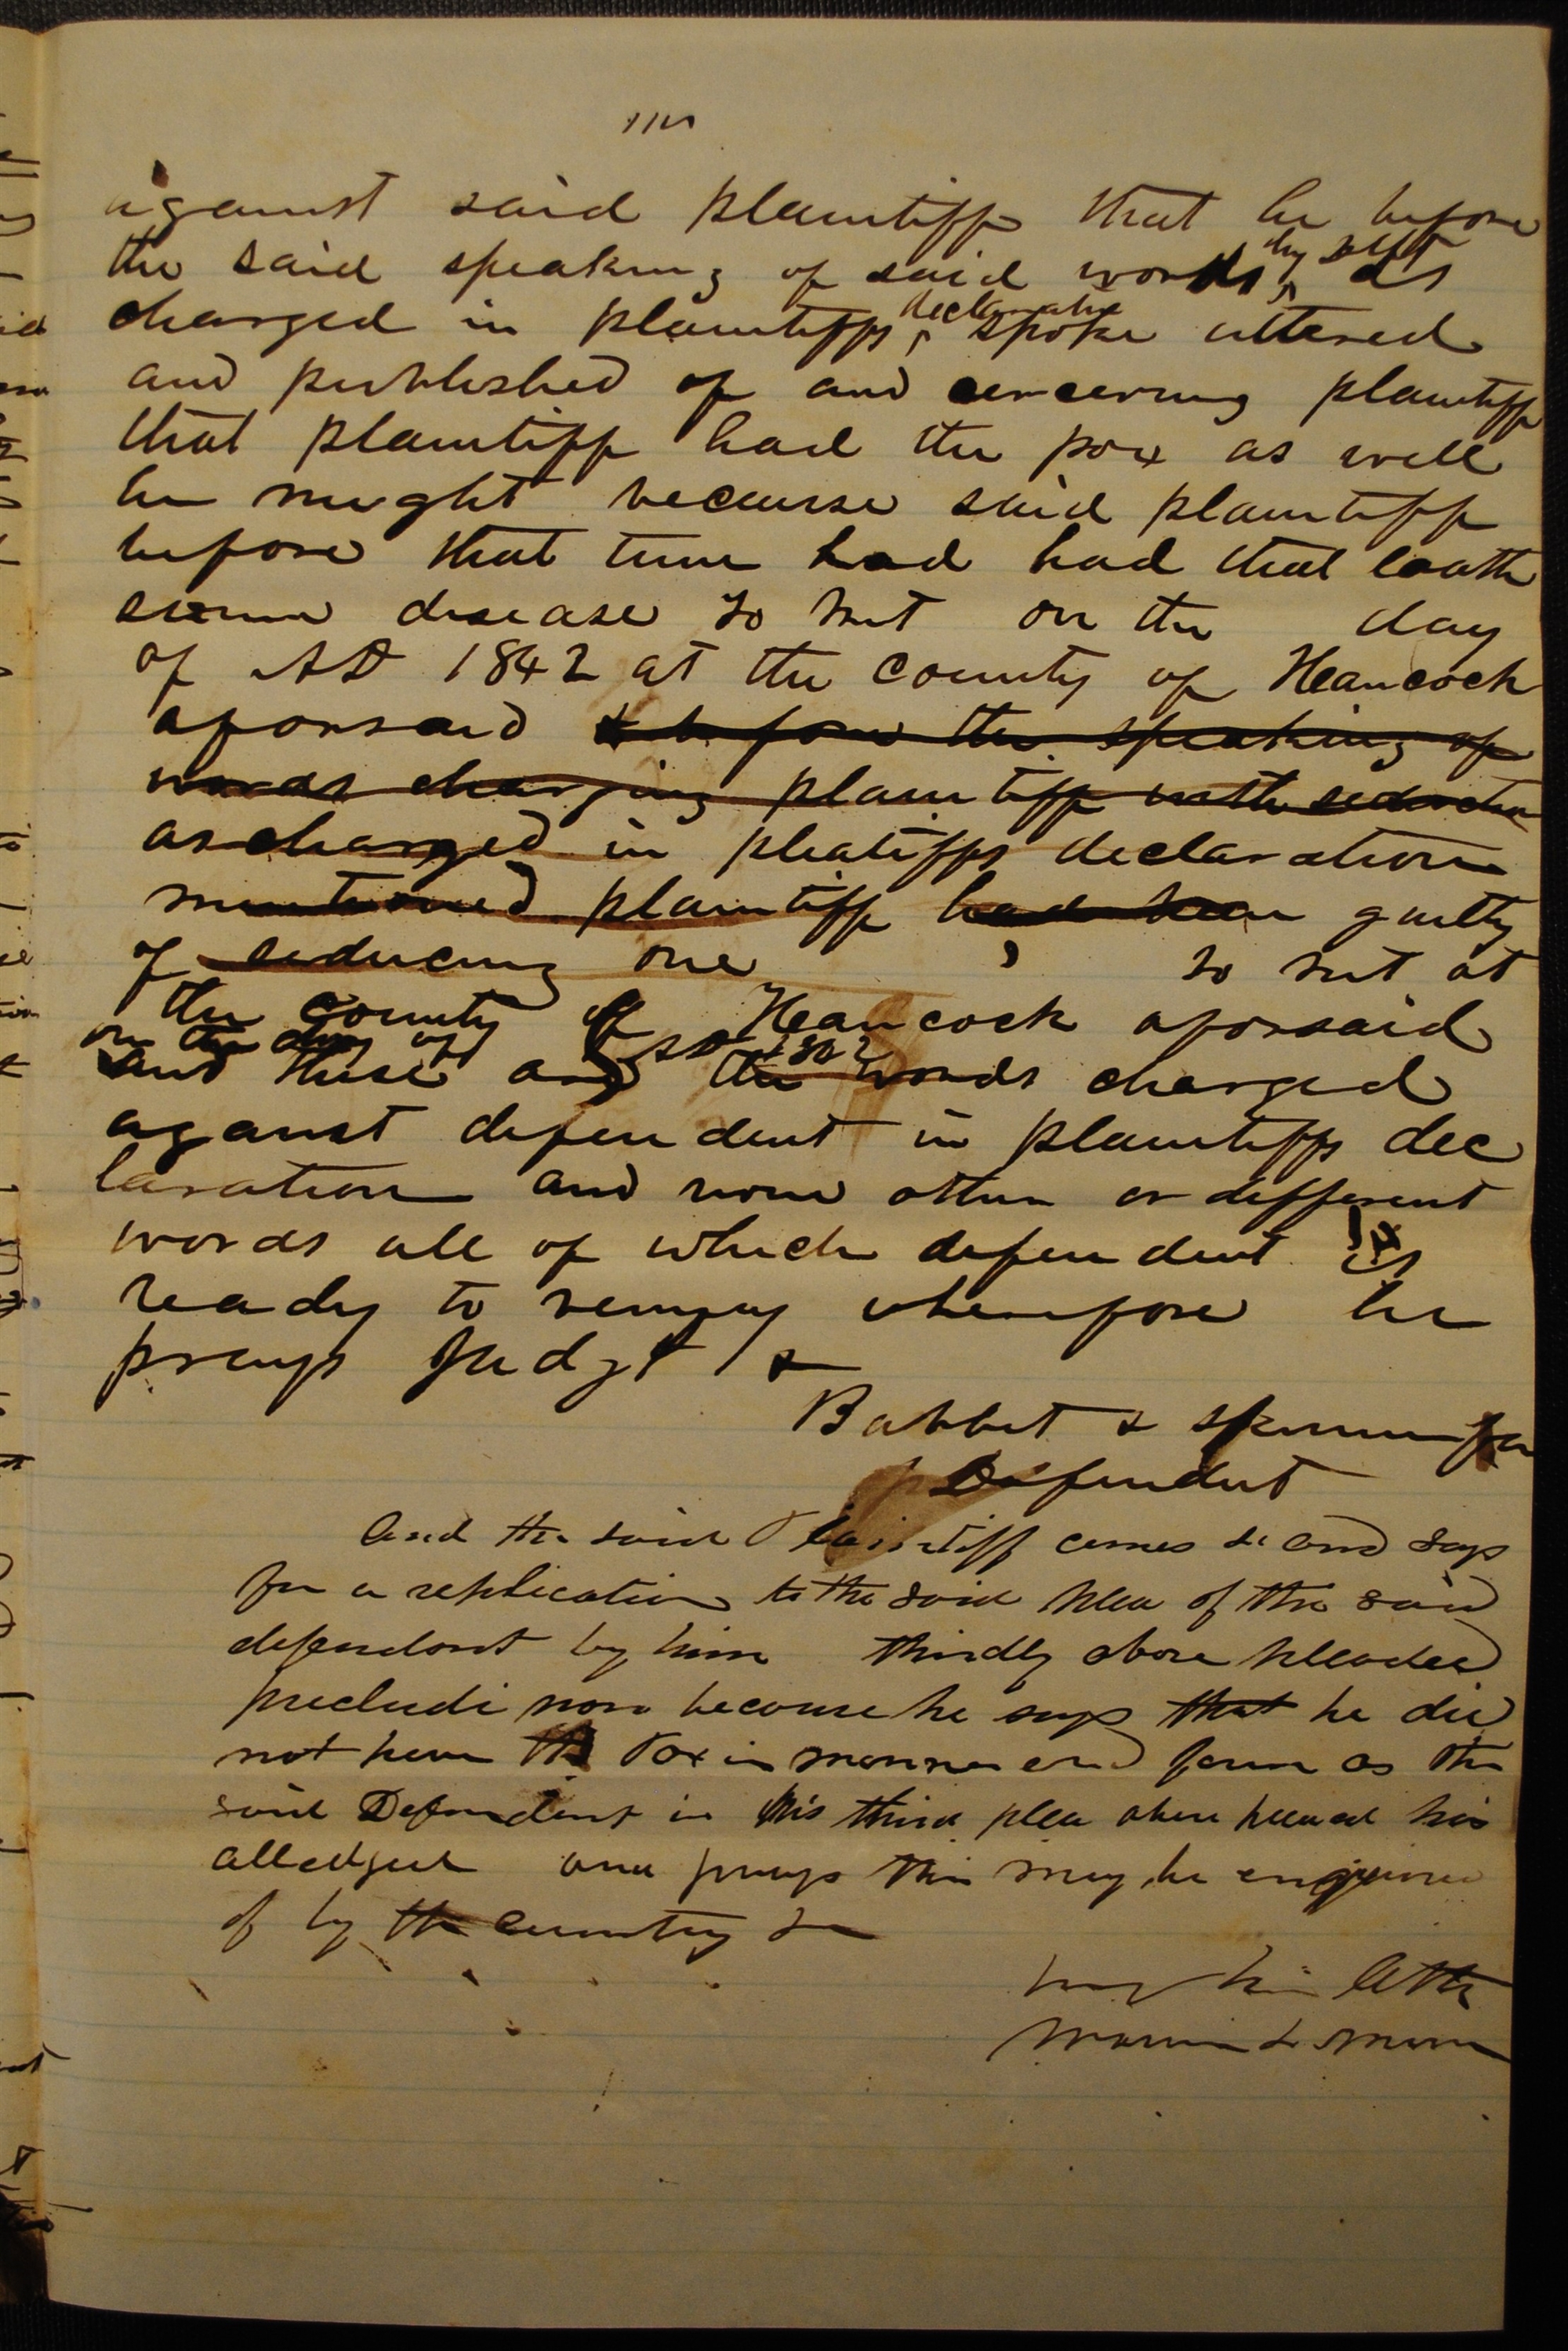 against said plaintiff that he before
by deft
the said speaking of said words, as
declaration
charged in plaintiffs, spoke uttered
and published of and concerning plaintiff
that plaintiff had the pox as well
he might because said plaintiff
before that time had had that loath
some disease to wit on the day
of AD 1842 at the county of Hancock
aforesaid & before the speaking of
words charging plaintiff with seduction
as charged in plaitiffs declaration
mentioned plaintiff had been guilty
of seducing one , to wit at
the county of Hancock aforsaid
on the day of AD 1842
and these are the words charged
against defendent in plaintiffs dec
laration and none other or different
words all of which defendent is
ready to verify wherefore he
prays Judgt &
Babbet & Skinner for
Defendent
And the said Plaintiff comes &c and says
for a replication to the said plea of the said
defendant by him thirdly above pleaded
precludi non because he says that he did
not have the Pox in manner and form as the
said Defendant in his third plea above pleaded has
alledged and prays this may be enquired
of by the country &c
by his Atts